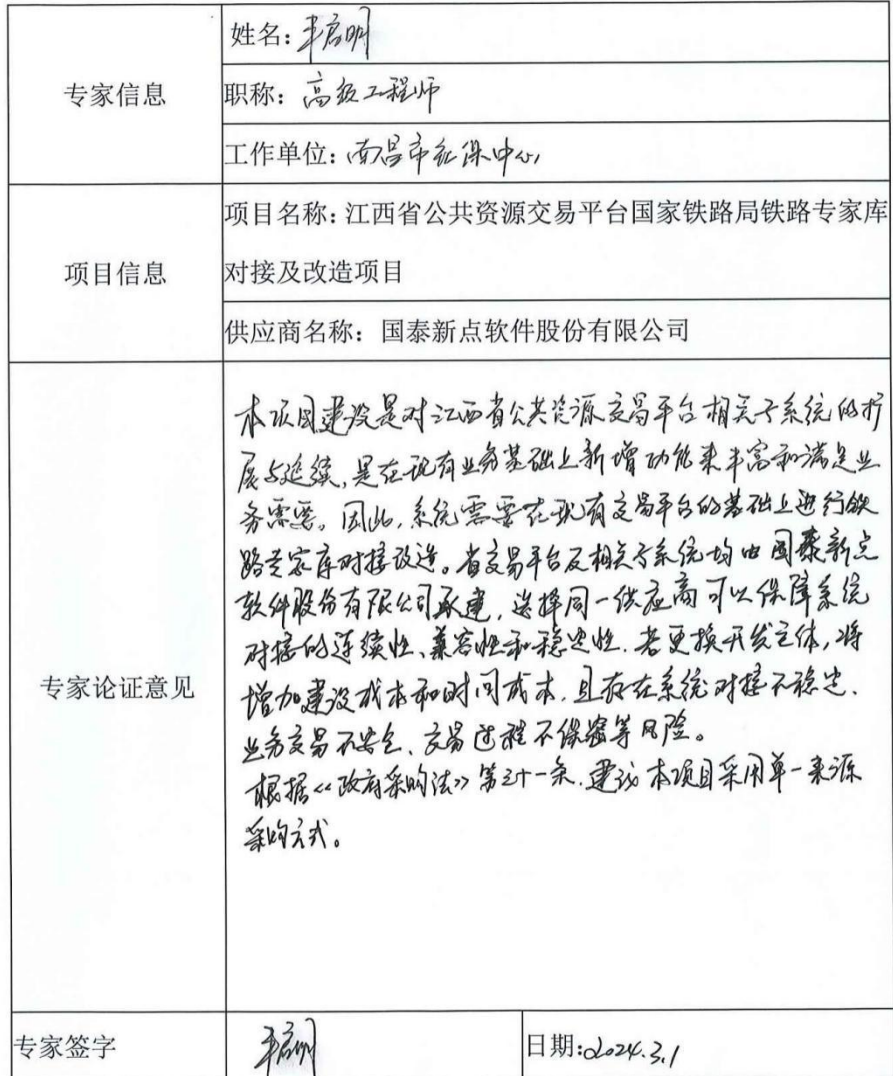 专家信息
姓名:
职称:高级工程师
工作单位:南昌市社保中心
项目信息
项目名称:江西省公共资源交易平台国家铁路局铁路专家库
对接及改造项目
供应商名称:国泰新点软件股份有限公司
专家论证意见
本项目建设是对江西省公共资源交易平台相关子系统的扩
展与延续,是在现有业务基础上新增功能来丰富和满足业
务需要。因此,系统需要在现有交易平台的基础上进行铁
路专家库对接改造。省交易平台及相关子系统均由国泰新点
软件股份有限公司承建,选择同一供应商可以保障系统
对接的连续性、兼容性和稳定性.若更换开发主体,将
增加建设成本和时间成本.且存在系统对接不稳定、
业务交易不安全、交易过程不保密等风险。
根据《政府采购法》第三十一条.建议本项目采用单一来源
采购方式。
专家签字
日期:2024.3.1